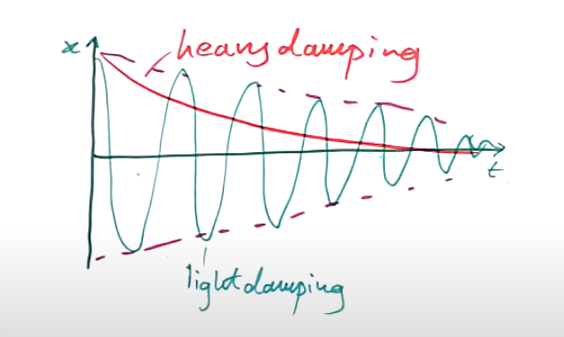 heavy damping
x
t
light damping